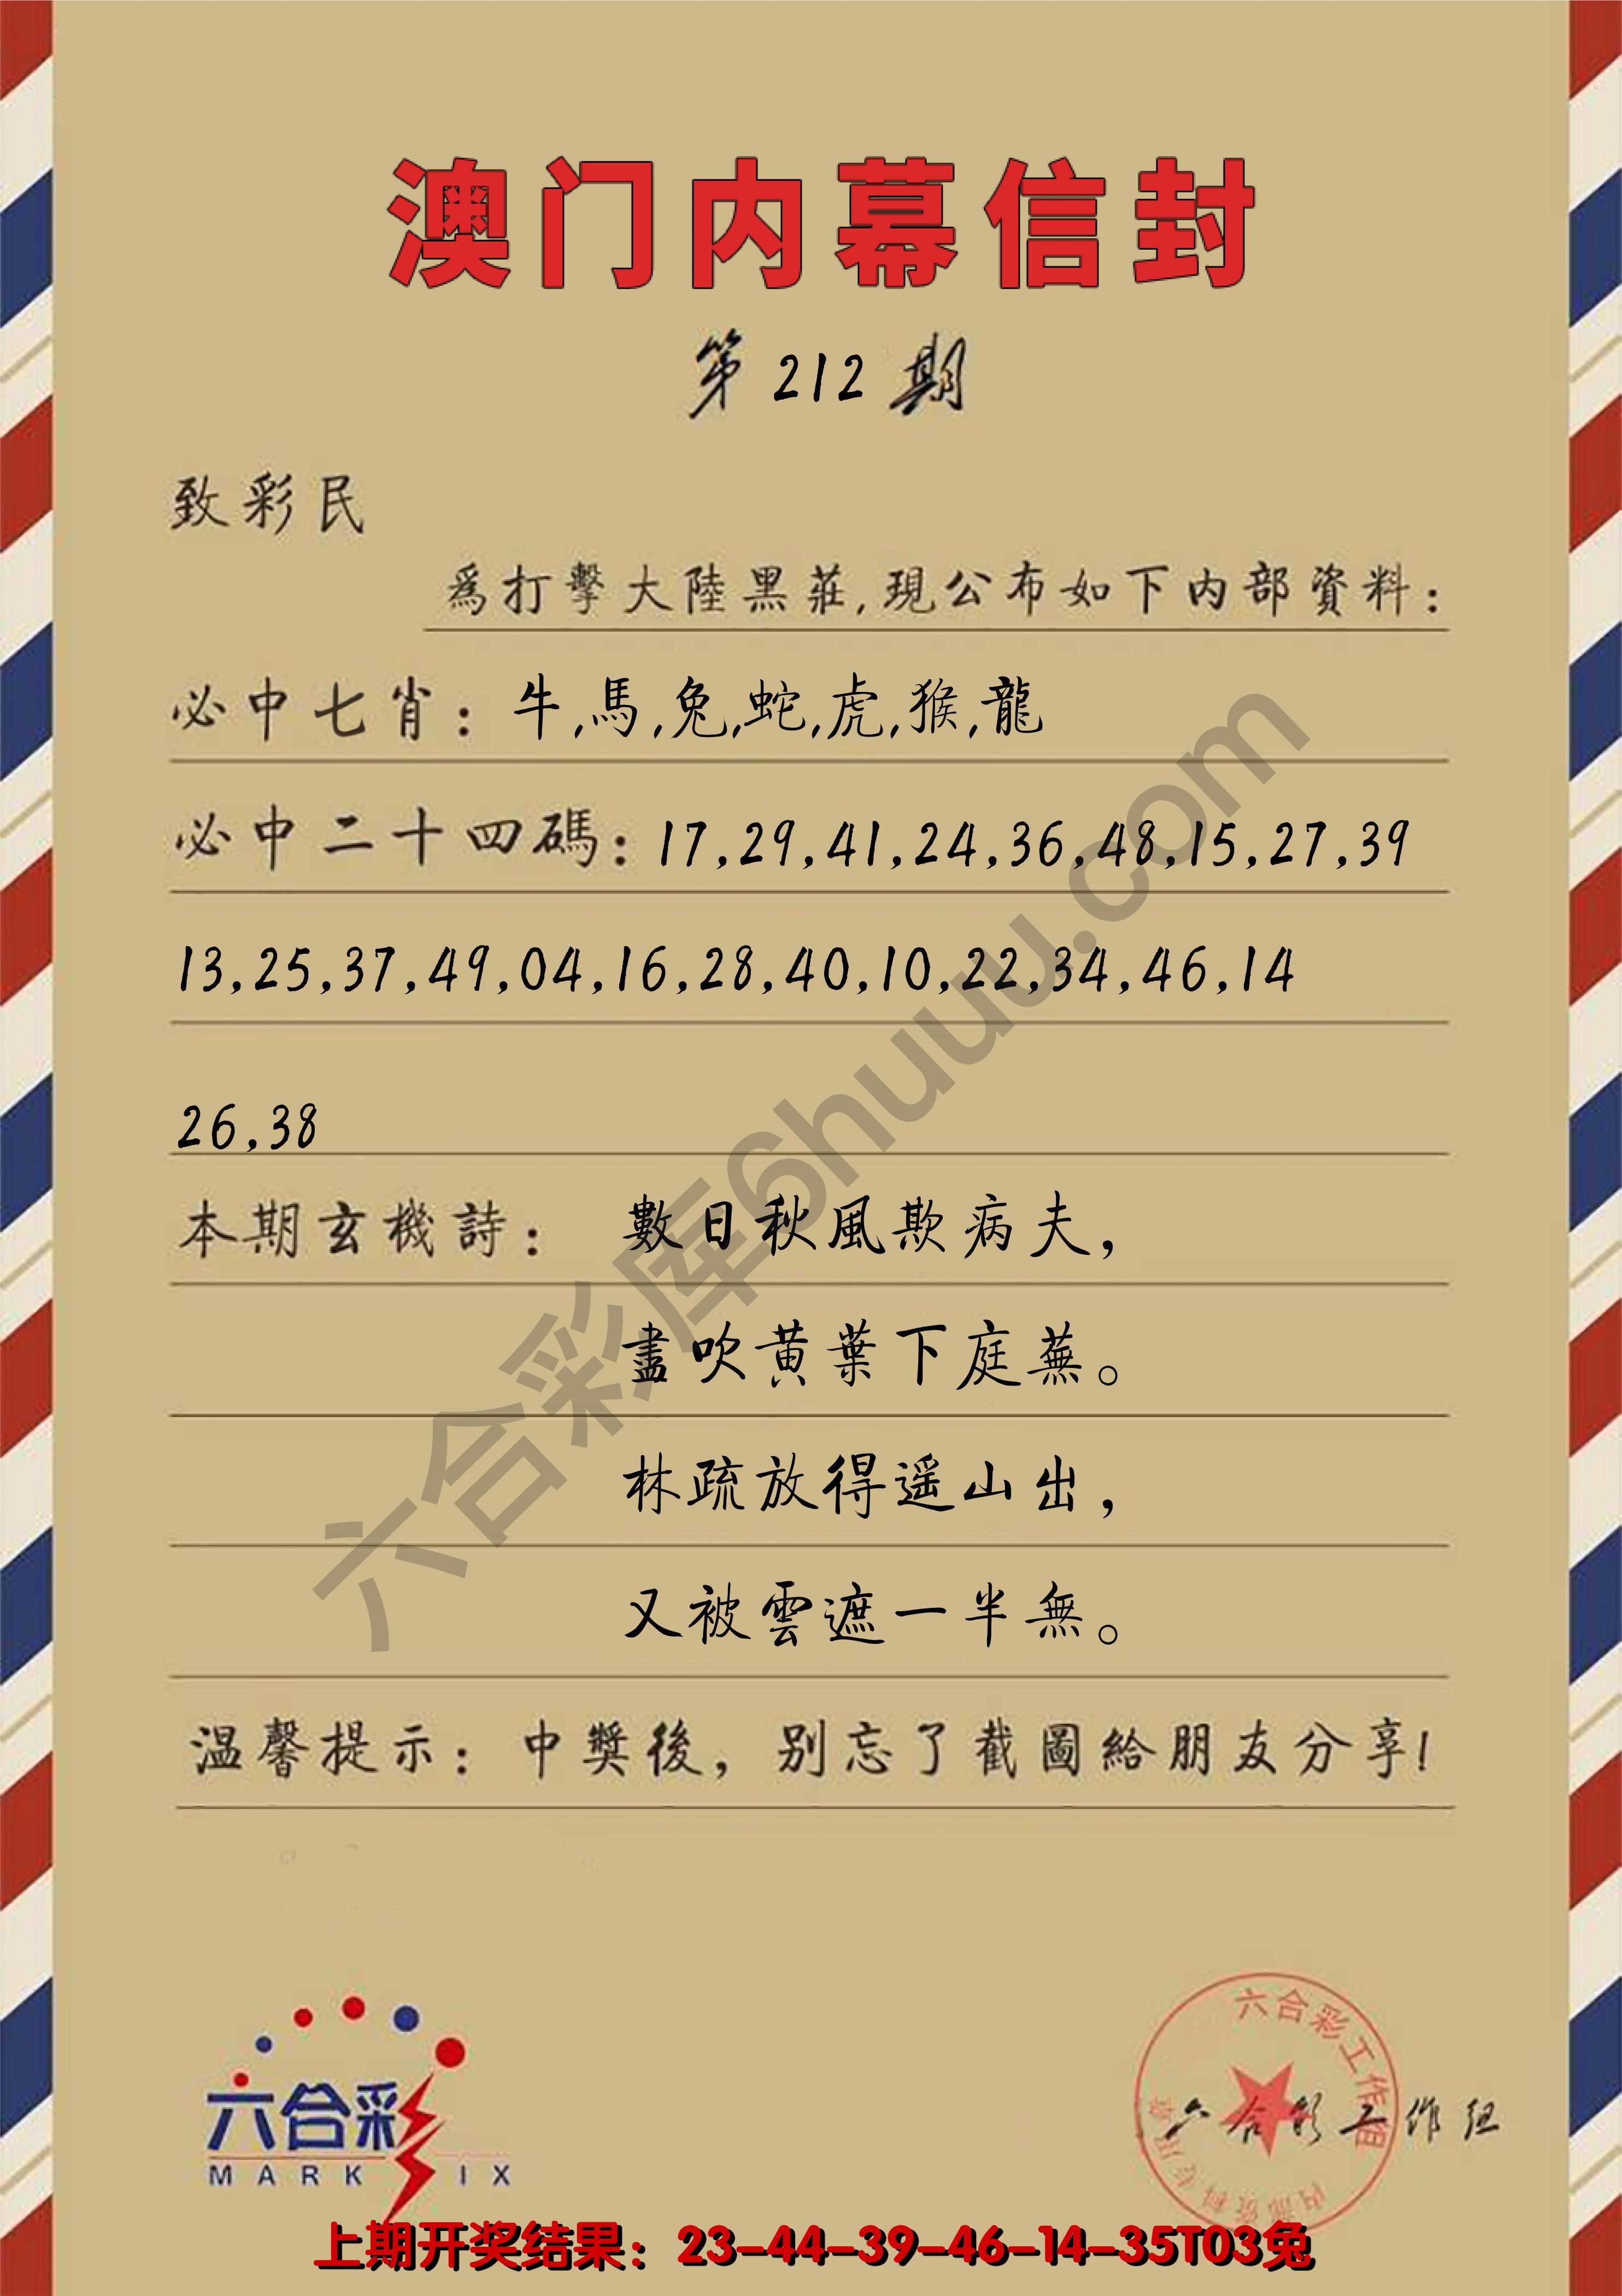 澳门内幕信封
第212期
致彩民
爲打擊大陸黑莊,現公布如下内部資料:
必中七肖: 牛,馬,兔,蛇,虎,猴,龍
必中二十四碼: 17,29,41,24,36,48,15,27,39
13,25,37,49,04,16,28,40,10,22,34,46,14
26,38
本期玄機詩: 數日秋風欺病夫,
盡吹黄葉下庭蕪。
林疏放得遥山出,
又被雲遮一半無。
温馨提示: 中獎後, 别忘了截圖給朋友分享!
六合彩库6huuu.com
六合彩
MARK SIX
六合彩工作组
内部资料专用章
六合彩工作组
上期开奖结果: 23-44-39-46-14-35T03兔